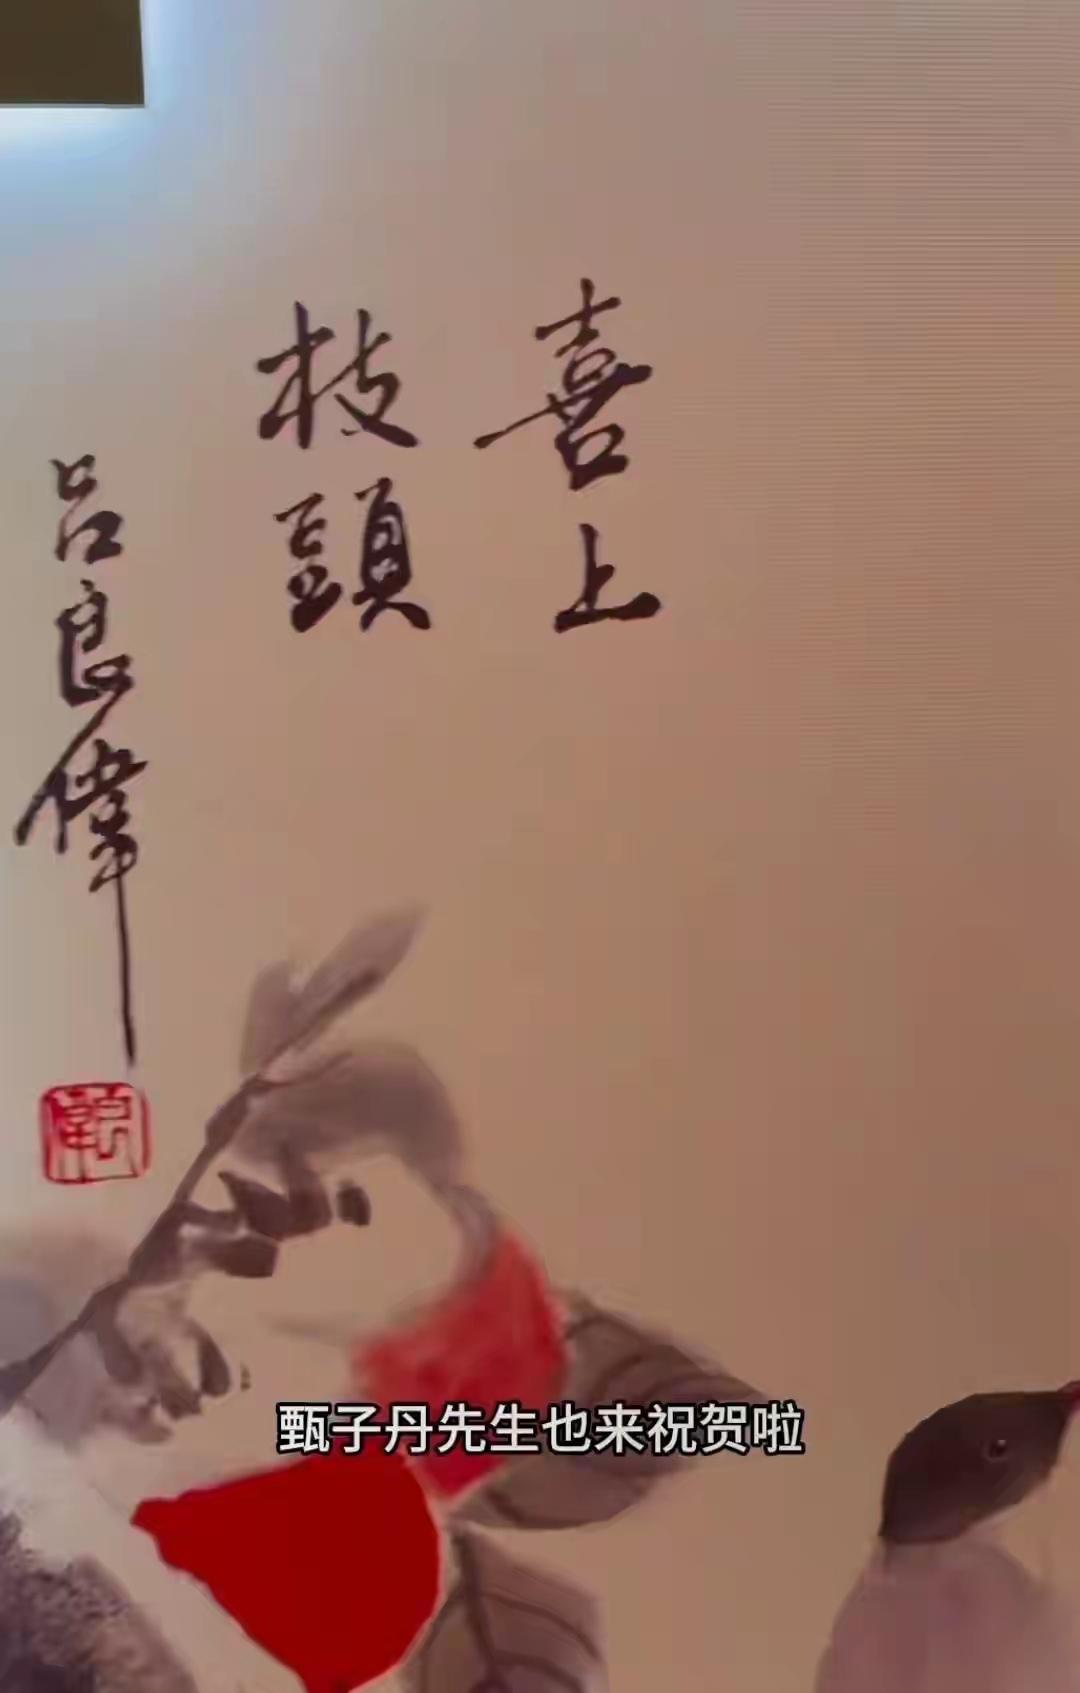 喜上
枝頭
呂良偉
甄子丹先生也来祝贺啦